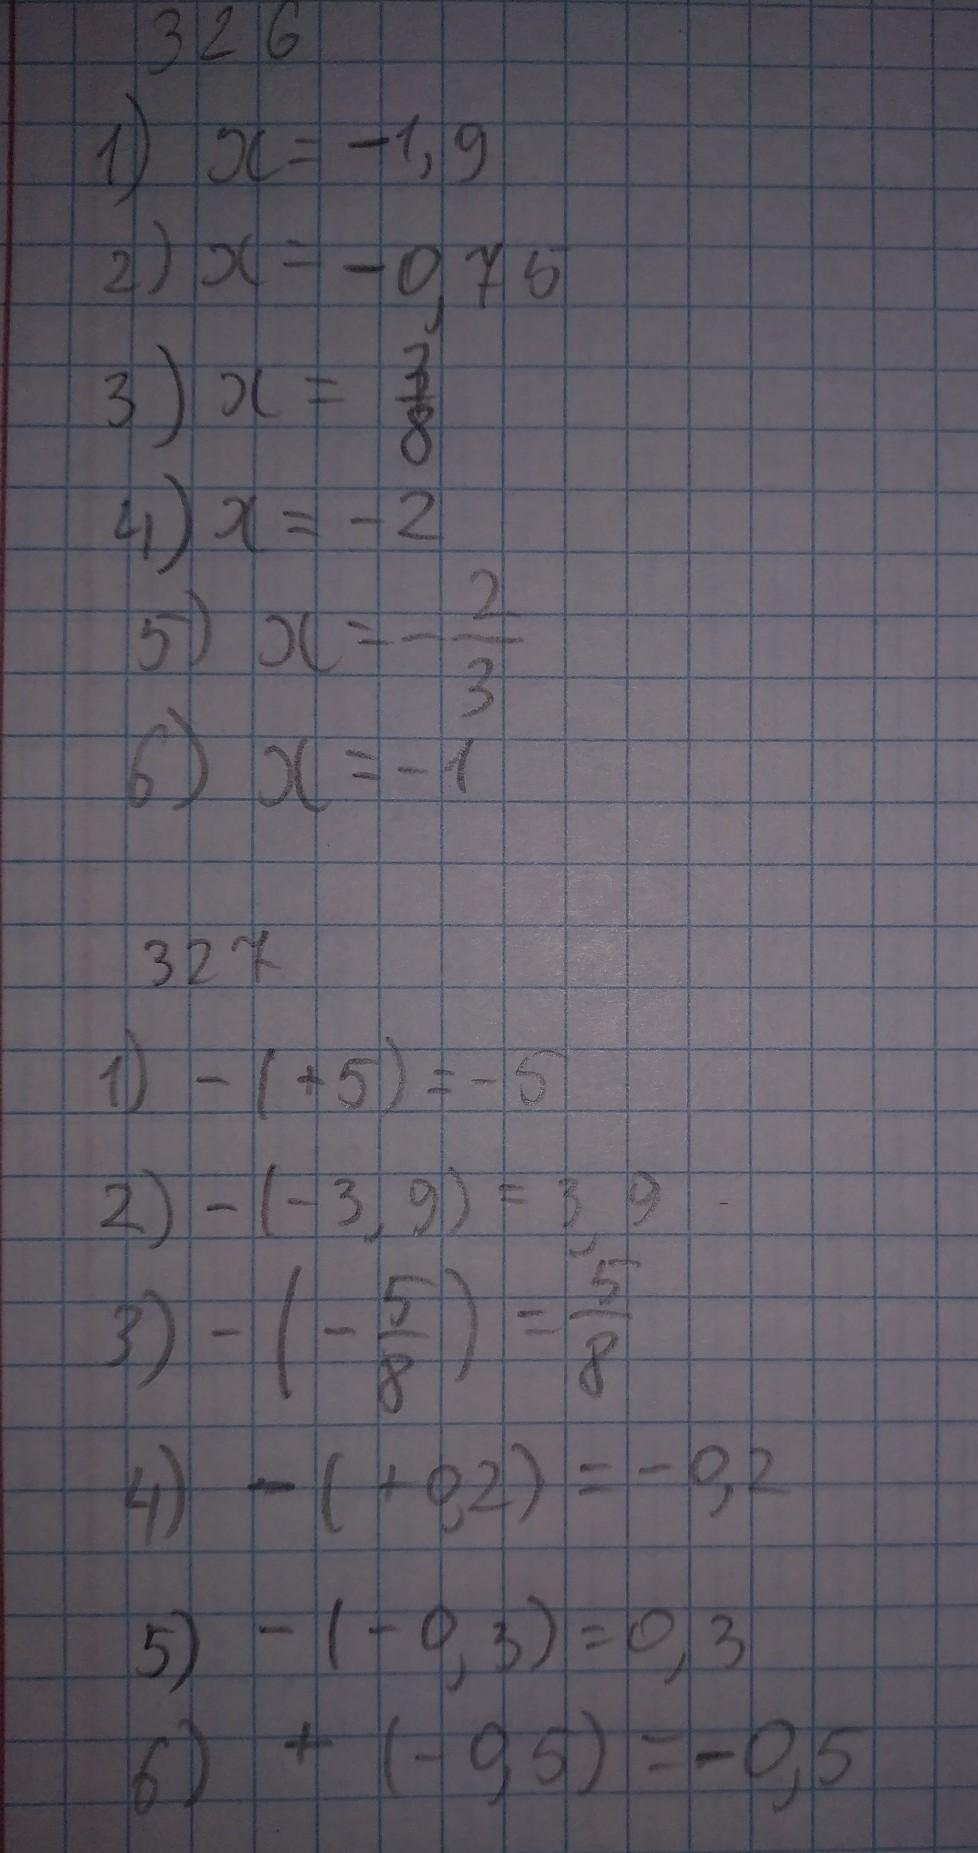 326
1) x = -1,9
2) x = -0,75
3) x = 7/8
4) x = -2
5) x = - 2/3
6) x = -1
327
1) - (+5) = -5
2) - (-3,9) = 3,9
3) - (- 5/8) = 5/8
4) - (+0,2) = -0,2
5) - (-0,3) = 0,3
6) + (-0,5) = -0,5